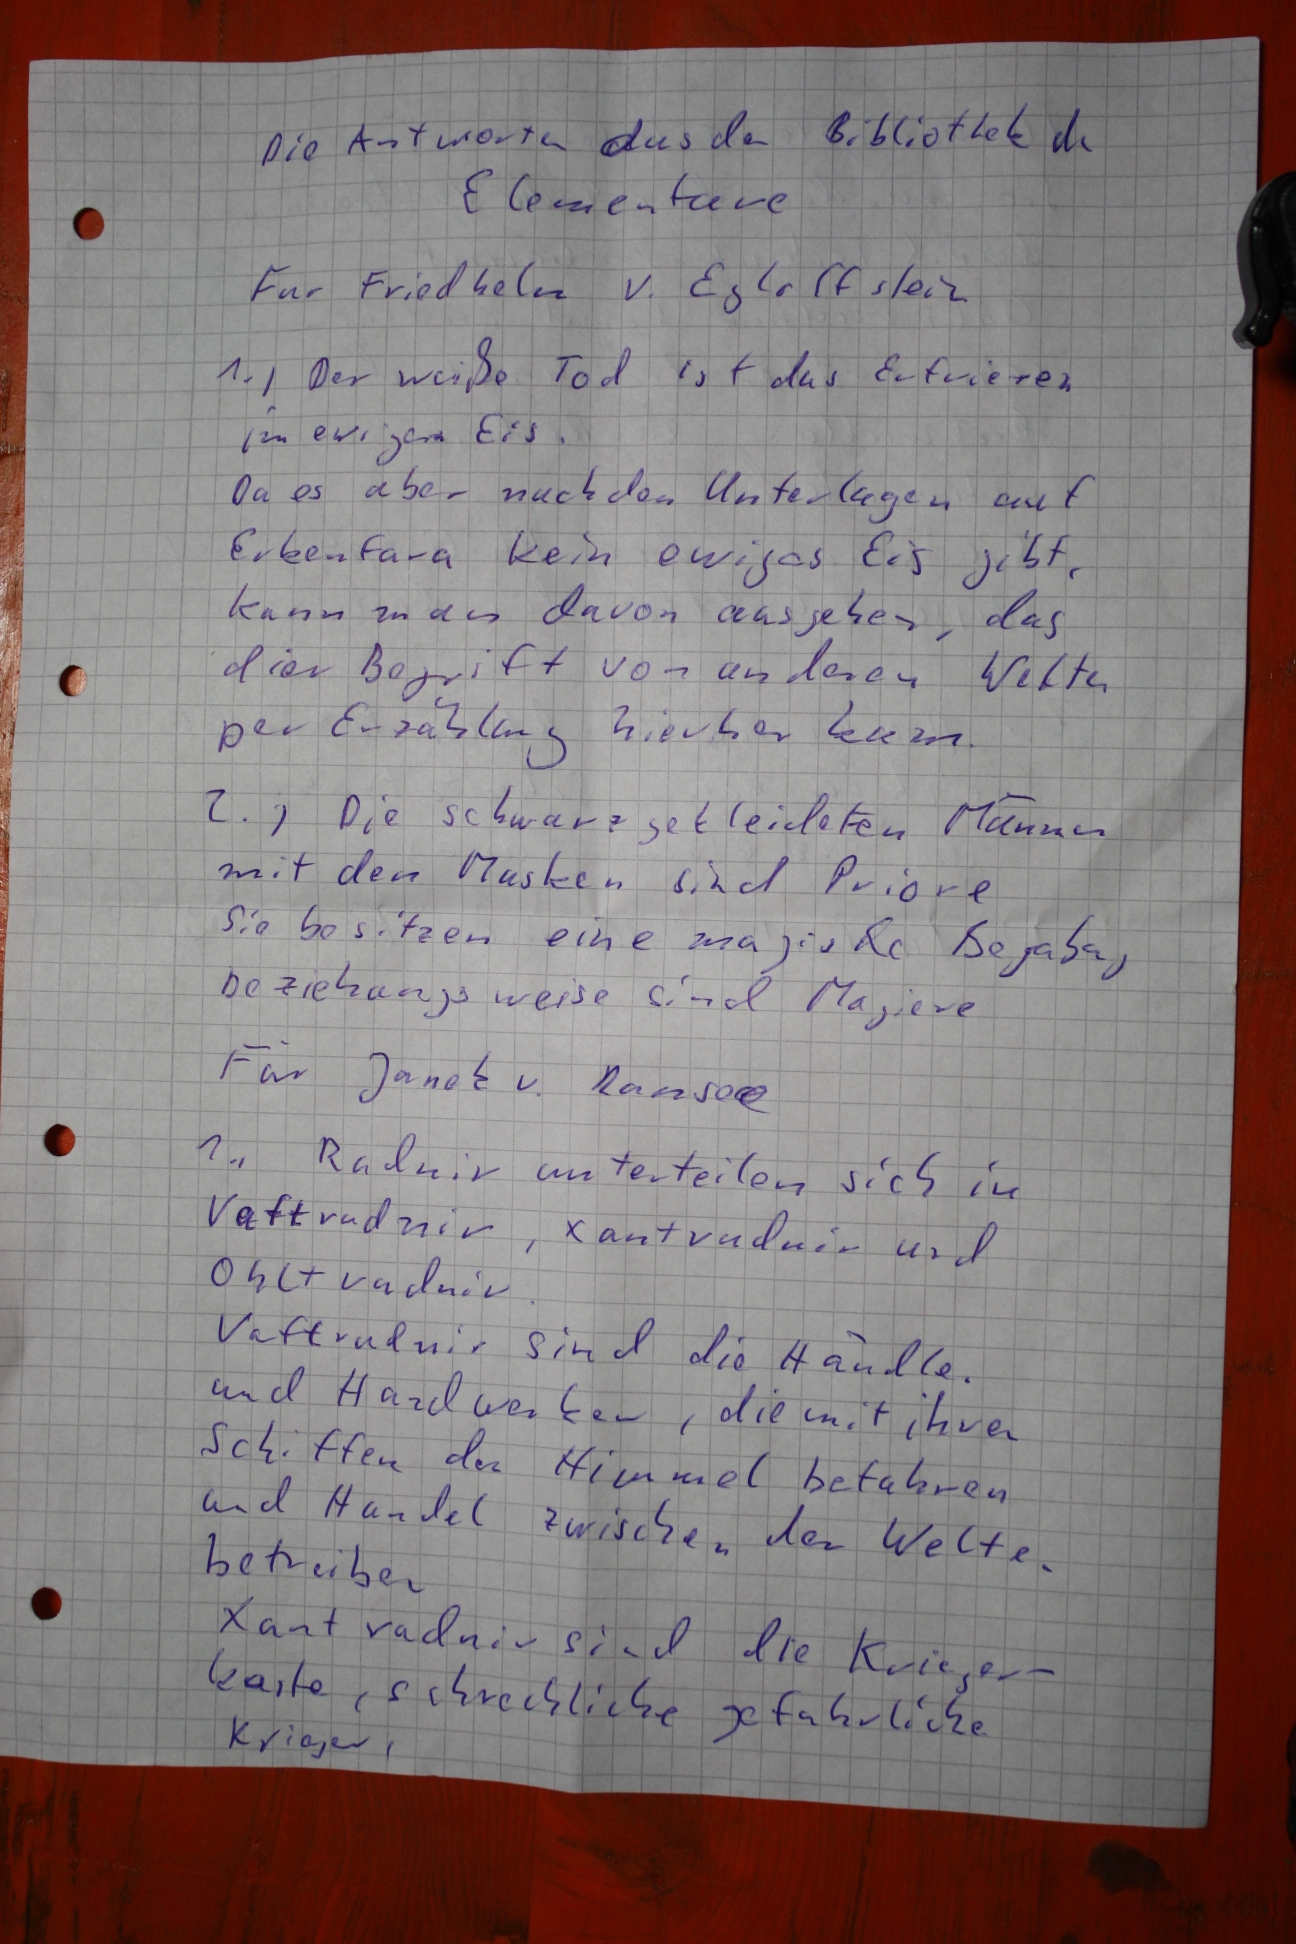 Die Antworten aus der Bibliothek der
Elementare
Für Friedhelm v. Egloffstein
1.) Der weiße Tod ist das Erfrieren
im ewigen Eis.
Da es aber nach den Unterlagen auf
Erkenfara kein ewiges Eis gibt,
kann man davon ausgehen, das
dier Begriff von anderen Welten
per Erzählung hierher kam.
2.) Die schwarzgekleideten Männer
mit den Masken sind Priore
Sie besitzen eine magische Begabung
beziehungsweise sind Magiere
Für Janek v. Ransee
1., Radnir unterteilen sich in
Vaftrudnir, Xantrudnir und
Ohltradnir.
Vaftrudnir sind die Händler
und Handwerker, die mit ihren
Schiffen den Himmel befahren
und Handel zwischen den Welten
betreiben
Xantradnir sind die Krieger-
kaste, schreckliche gefährliche
Krieger,